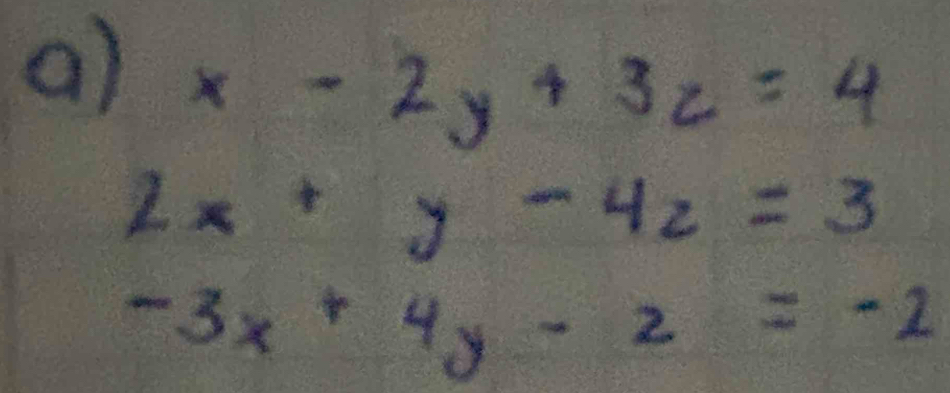 a) x - 2y + 3z = 4
2x + y - 4z = 3
-3x + 4y - z = -2